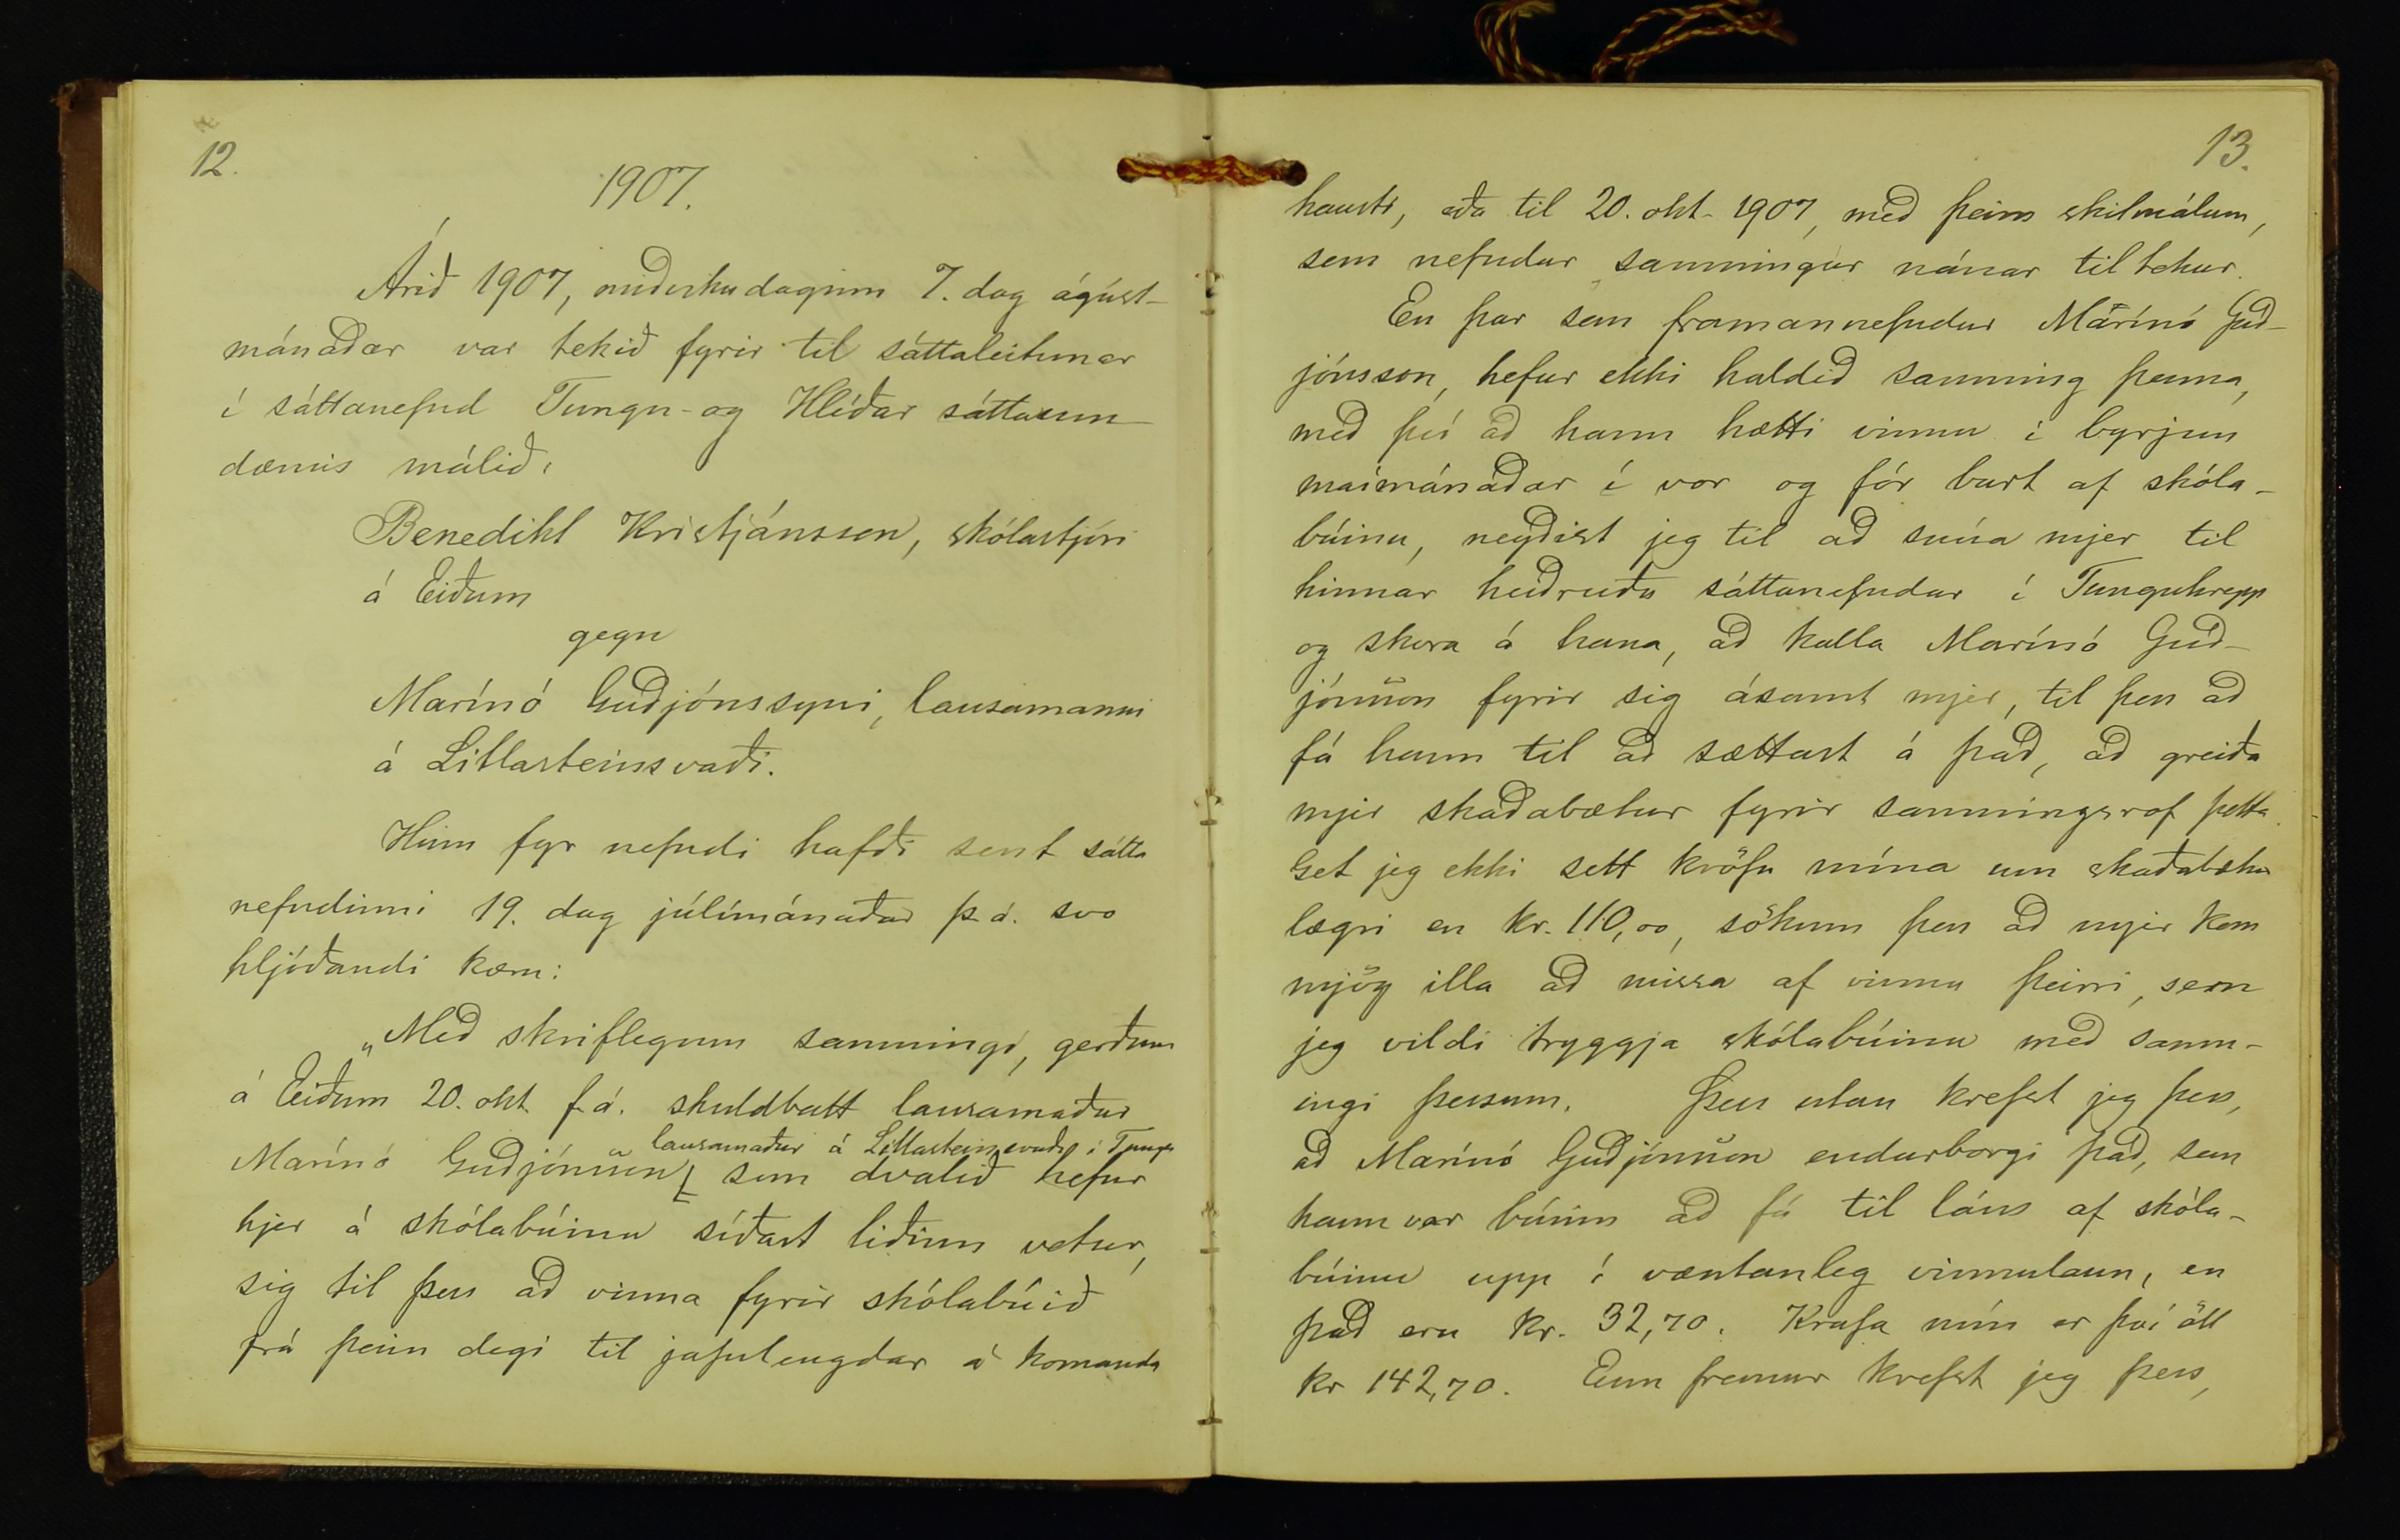 12.
1907.
Árið 1907, miðvikudaginn 7. dag ágúst-
mánaðar var tekið fyrir til sáttaleitunar
í sáttanefnd Tungu- og Hlíðar sáttaum-
dæmis málið:
Benedikt Kristjánsson, skólastjóri
á Eiðum
gegn
Marínó Guðjónssyni, lausamanni
á Litlasteinsvaði.
Hinn fyr nefndi hafði sent sátta
nefndinni 19. dag júlímánaðar þ.á. svo
hljóðandi kæru:
„Með skriflegum samningi, gerðum
á Eiðum 20. okt. f.á. skuldbatt lausamaður
lausamaður á Litlasteinsvaði í Tungu
Marínó Guðjónsson, sem dvalið hefur
hjer á skólabúinu síðast liðinn vetur,
sig til þess að vinna fyrir skólabúið
frá þeim degi til jafnlengdar á komanda
13.
hausti, eða til 20. okt. 1907, með þeim skilmálum,
sem nefndur samningur nánar tiltekur.
En þar sem framannefndur Marínó Guð-
jónsson, hefur ekki haldið samning þenna,
með því að hann hætti vinnu í byrjun
maímánaðar í vor og fór burt af skóla-
búinu, neyðist jeg til að snúa mjer til
hinnar heiðruðu sáttanefndar í Tunguhrepp
og skora á hana, að kalla Marínó Guð-
jónsson fyrir sig ásamt mjer, til þess að
fá hann til að sættast á það, að greiða
mjer skaðabætur fyrir samningsrof þetta.
Get jeg ekki sett kröfu mína um skaðabætur
lægri en kr. 110,00, sökum þess að mjer kom
mjög illa að missa af vinnu þeirri, sem
jeg vildi tryggja skólabúinu með samn-
ingi þessum. Þess utan krefst jeg þess,
að Marínó Guðjónsson endurborgi það, sem
hann var búinn að fá til láns af skóla-
búinu upp í væntanleg vinnulaun, en
það eru kr. 32,70. Krafa mín er því öll
kr 142,70. Enn fremur krefst jeg þess,